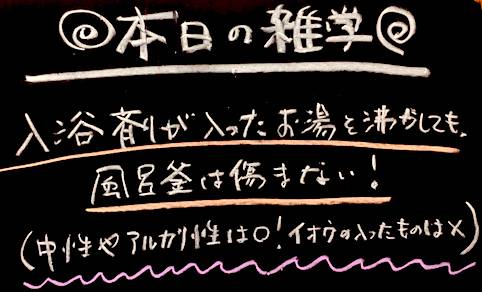 本日の雑学
入浴剤が入ったお湯を沸かしても、
風呂釜は傷まない!
(中性やアルカリ性は〇!イオウの入ったものは×)